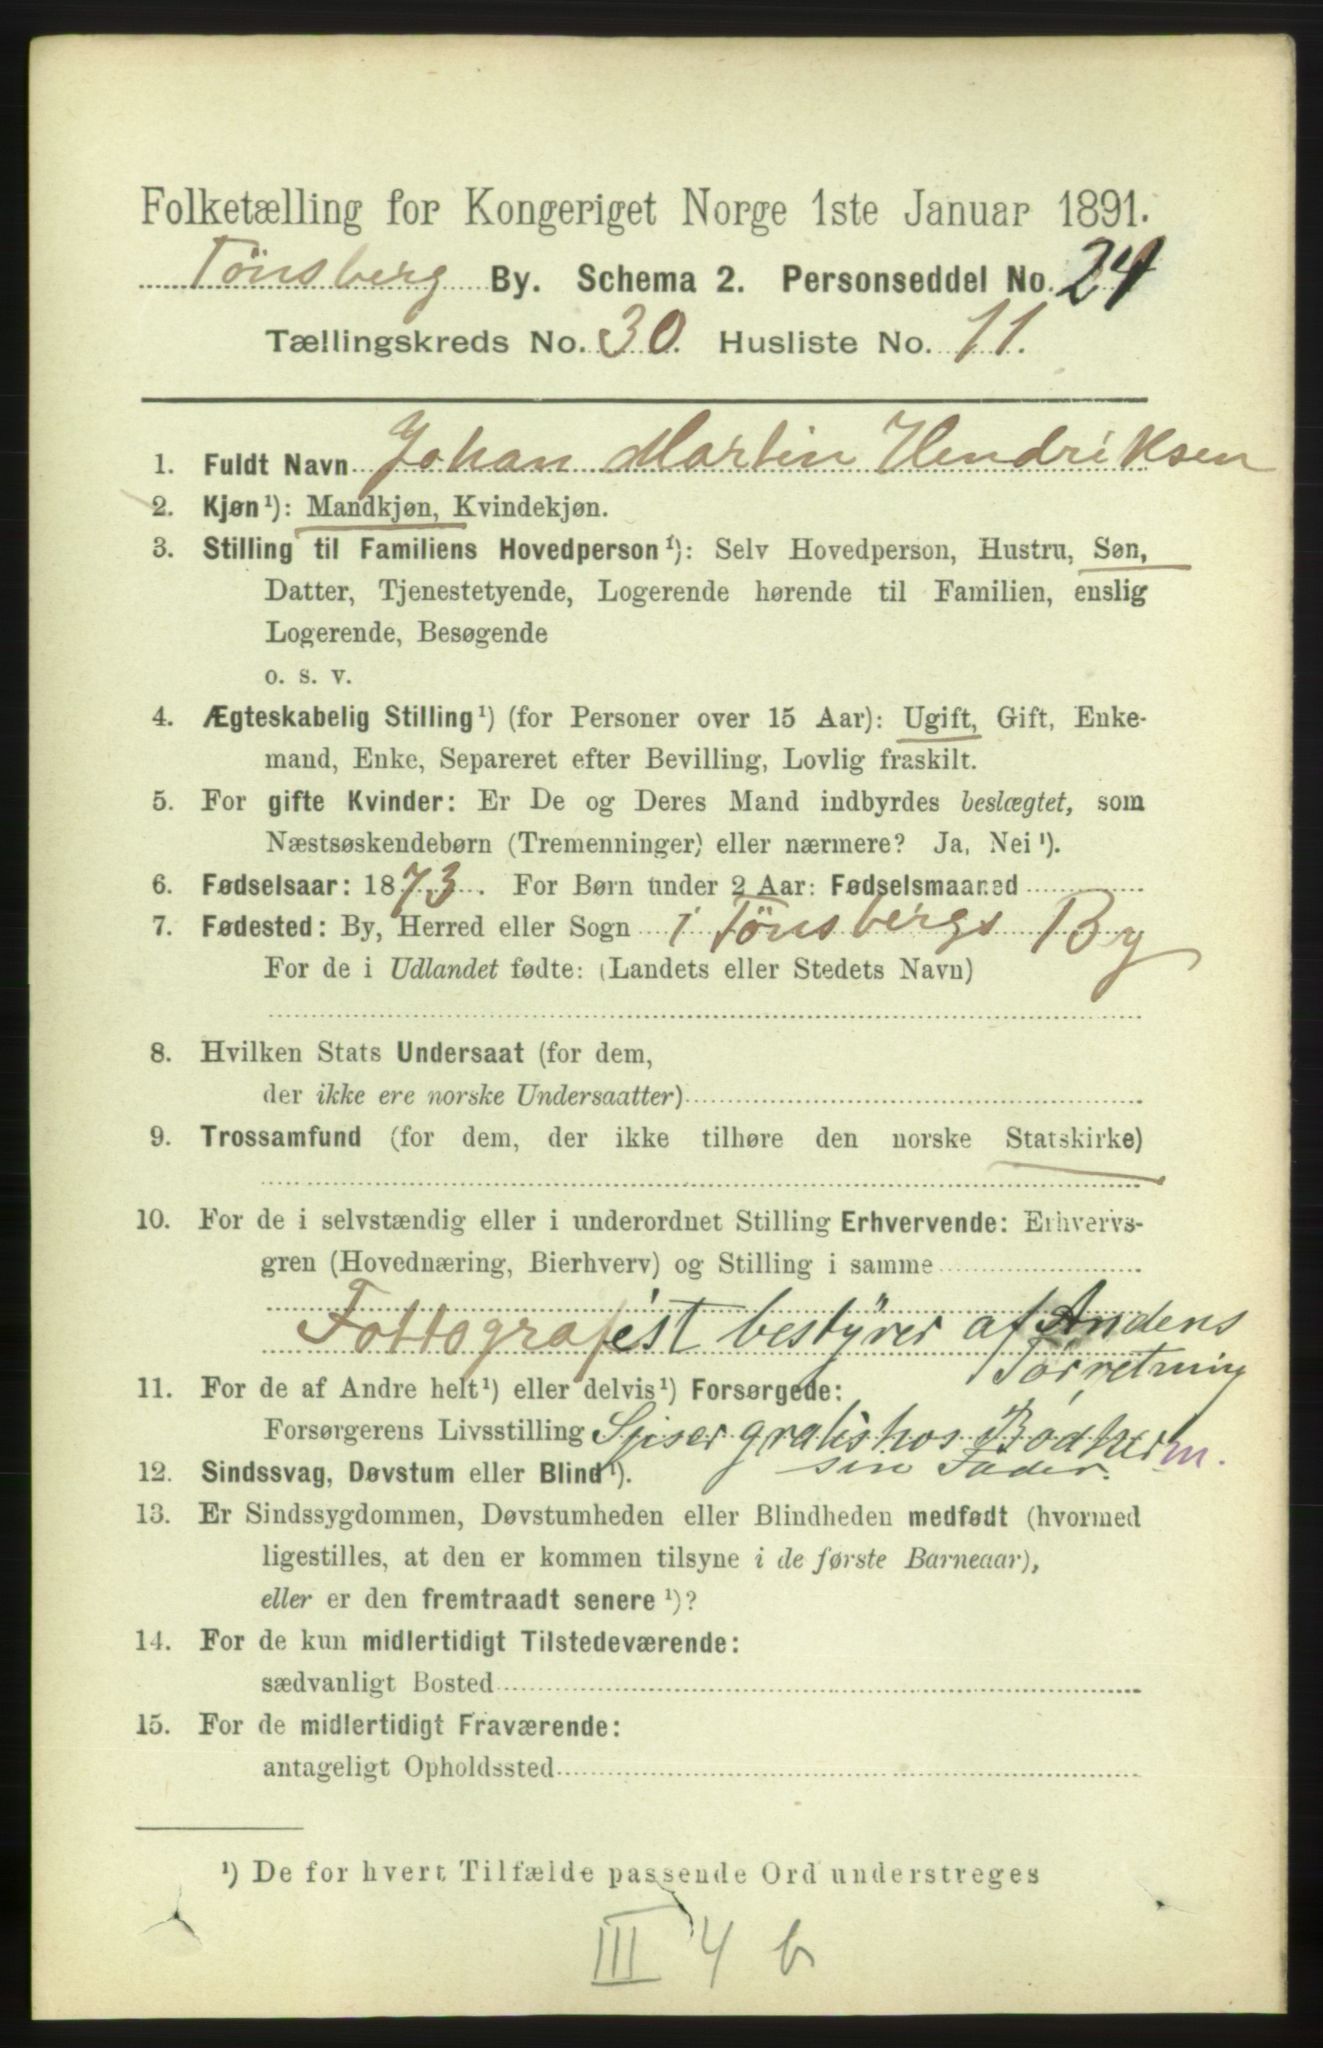 Folketælling for Kongeriget Norge 1ste Januar 1891.
Tönsberg By. Schema 2. Personseddel No. 24
Tællingskreds No. 30. Husliste No. 11.
1. Fuldt Navn Johan Martin Hendriksen
2. Kjøn¹): Mandkjøn, Kvindekjøn.
3. Stilling til Familiens Hovedperson¹): Selv Hovedperson, Hustru, Søn,
Datter, Tjenestetyende, Logerende hørende til Familien, enslig
Logerende, Besøgende
o. s. v.
4. Ægteskabelig Stilling¹) (for Personer over 15 Aar): Ugift, Gift, Enke-
mand, Enke, Separeret efter Bevilling, Lovlig fraskilt.
5. For gifte Kvinder: Er De og Deres Mand indbyrdes beslægtet, som
Næstsøskendebørn (Tremenninger) eller nærmere? Ja, Nei¹).
6. Fødselsaar: 1873. For Børn under 2 Aar: Fødselsmaaned
7. Fødested: By, Herred eller Sogn i Tönsbergs By
For de i Udlandet fødte: (Landets eller Stedets Navn)
8. Hvilken Stats Undersaat (for dem,
der ikke ere norske Undersaatter)
9. Trossamfund (for dem, der ikke tilhøre den norske Statskirke)
10. For de i selvstændig eller i underordnet Stilling Erhvervende: Erhvervs-
gren (Hovednæring, Bierhverv) og Stilling i samme
Fottografist bestyrer af Andens
Forretning
11. For de af Andre helt¹) eller delvis¹) Forsørgede:
Forsørgerens Livsstilling Spiser gratis hos m.
sin Fader.
12. Sindssvag, Døvstum eller Blind¹).
13. Er Sindssygdommen, Døvstumheden eller Blindheden medfødt (hvormed
ligestilles, at den er kommen tilsyne i de første Barneaar),
eller er den fremtraadt senere¹)?
14. For de kun midlertidigt Tilstedeværende:
sædvanligt Bosted
15. For de midlertidigt Fraværende:
antageligt Opholdssted
¹) De for hvert Tilfælde passende Ord understreges
III 4 b